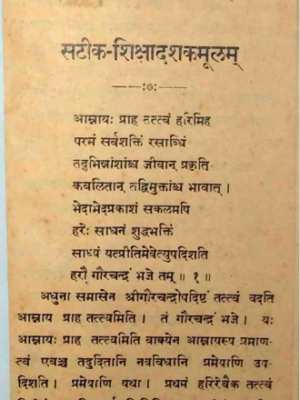 सटीक-शिक्षादशकमूलम्
आम्नायः प्राह तत्त्वं हरिमिह
परमं सर्वशक्तिं रसाब्धिं
तद्भिन्नांशांश्च जीवान् प्रकृति-
कवलितान् तद्विमुक्तांश्च भावात् ।
भेदाभेदप्रकाशं सकलमपि
हरेः साधनं शुद्धभक्तिं
साध्यं यत्प्रीतिमेवेत्युपदिशति
हरौ गौरचन्द्रं भजे तम् ॥ १ ॥
अधुना समासेन श्रीगौरचन्द्रोपदिष्टं तत्त्वं वदति
आम्नाय प्राह तत्त्वमिति । तं गौरचन्द्रं भजे । यः
आम्नायः प्राह तत्त्वमिति वाक्येन आम्नायस्य प्रमाण-
त्वं एवञ्च तदुदितानि नवविधानि प्रमेयाणि उप-
दिशति । प्रमेयाणि यथा । प्रथमं हरिरेवैक तत्त्वं